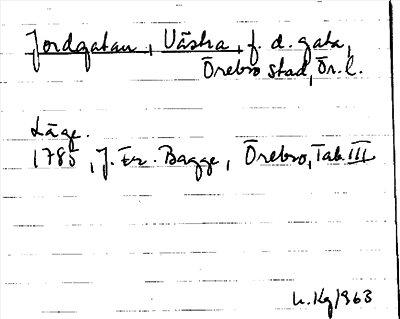 Jordgatan, Västra, f. d. gata,
Örebro stad, Ör. l.
Läge.
1785, J. Fr. Bagge, Örebro, Tab. III
1963